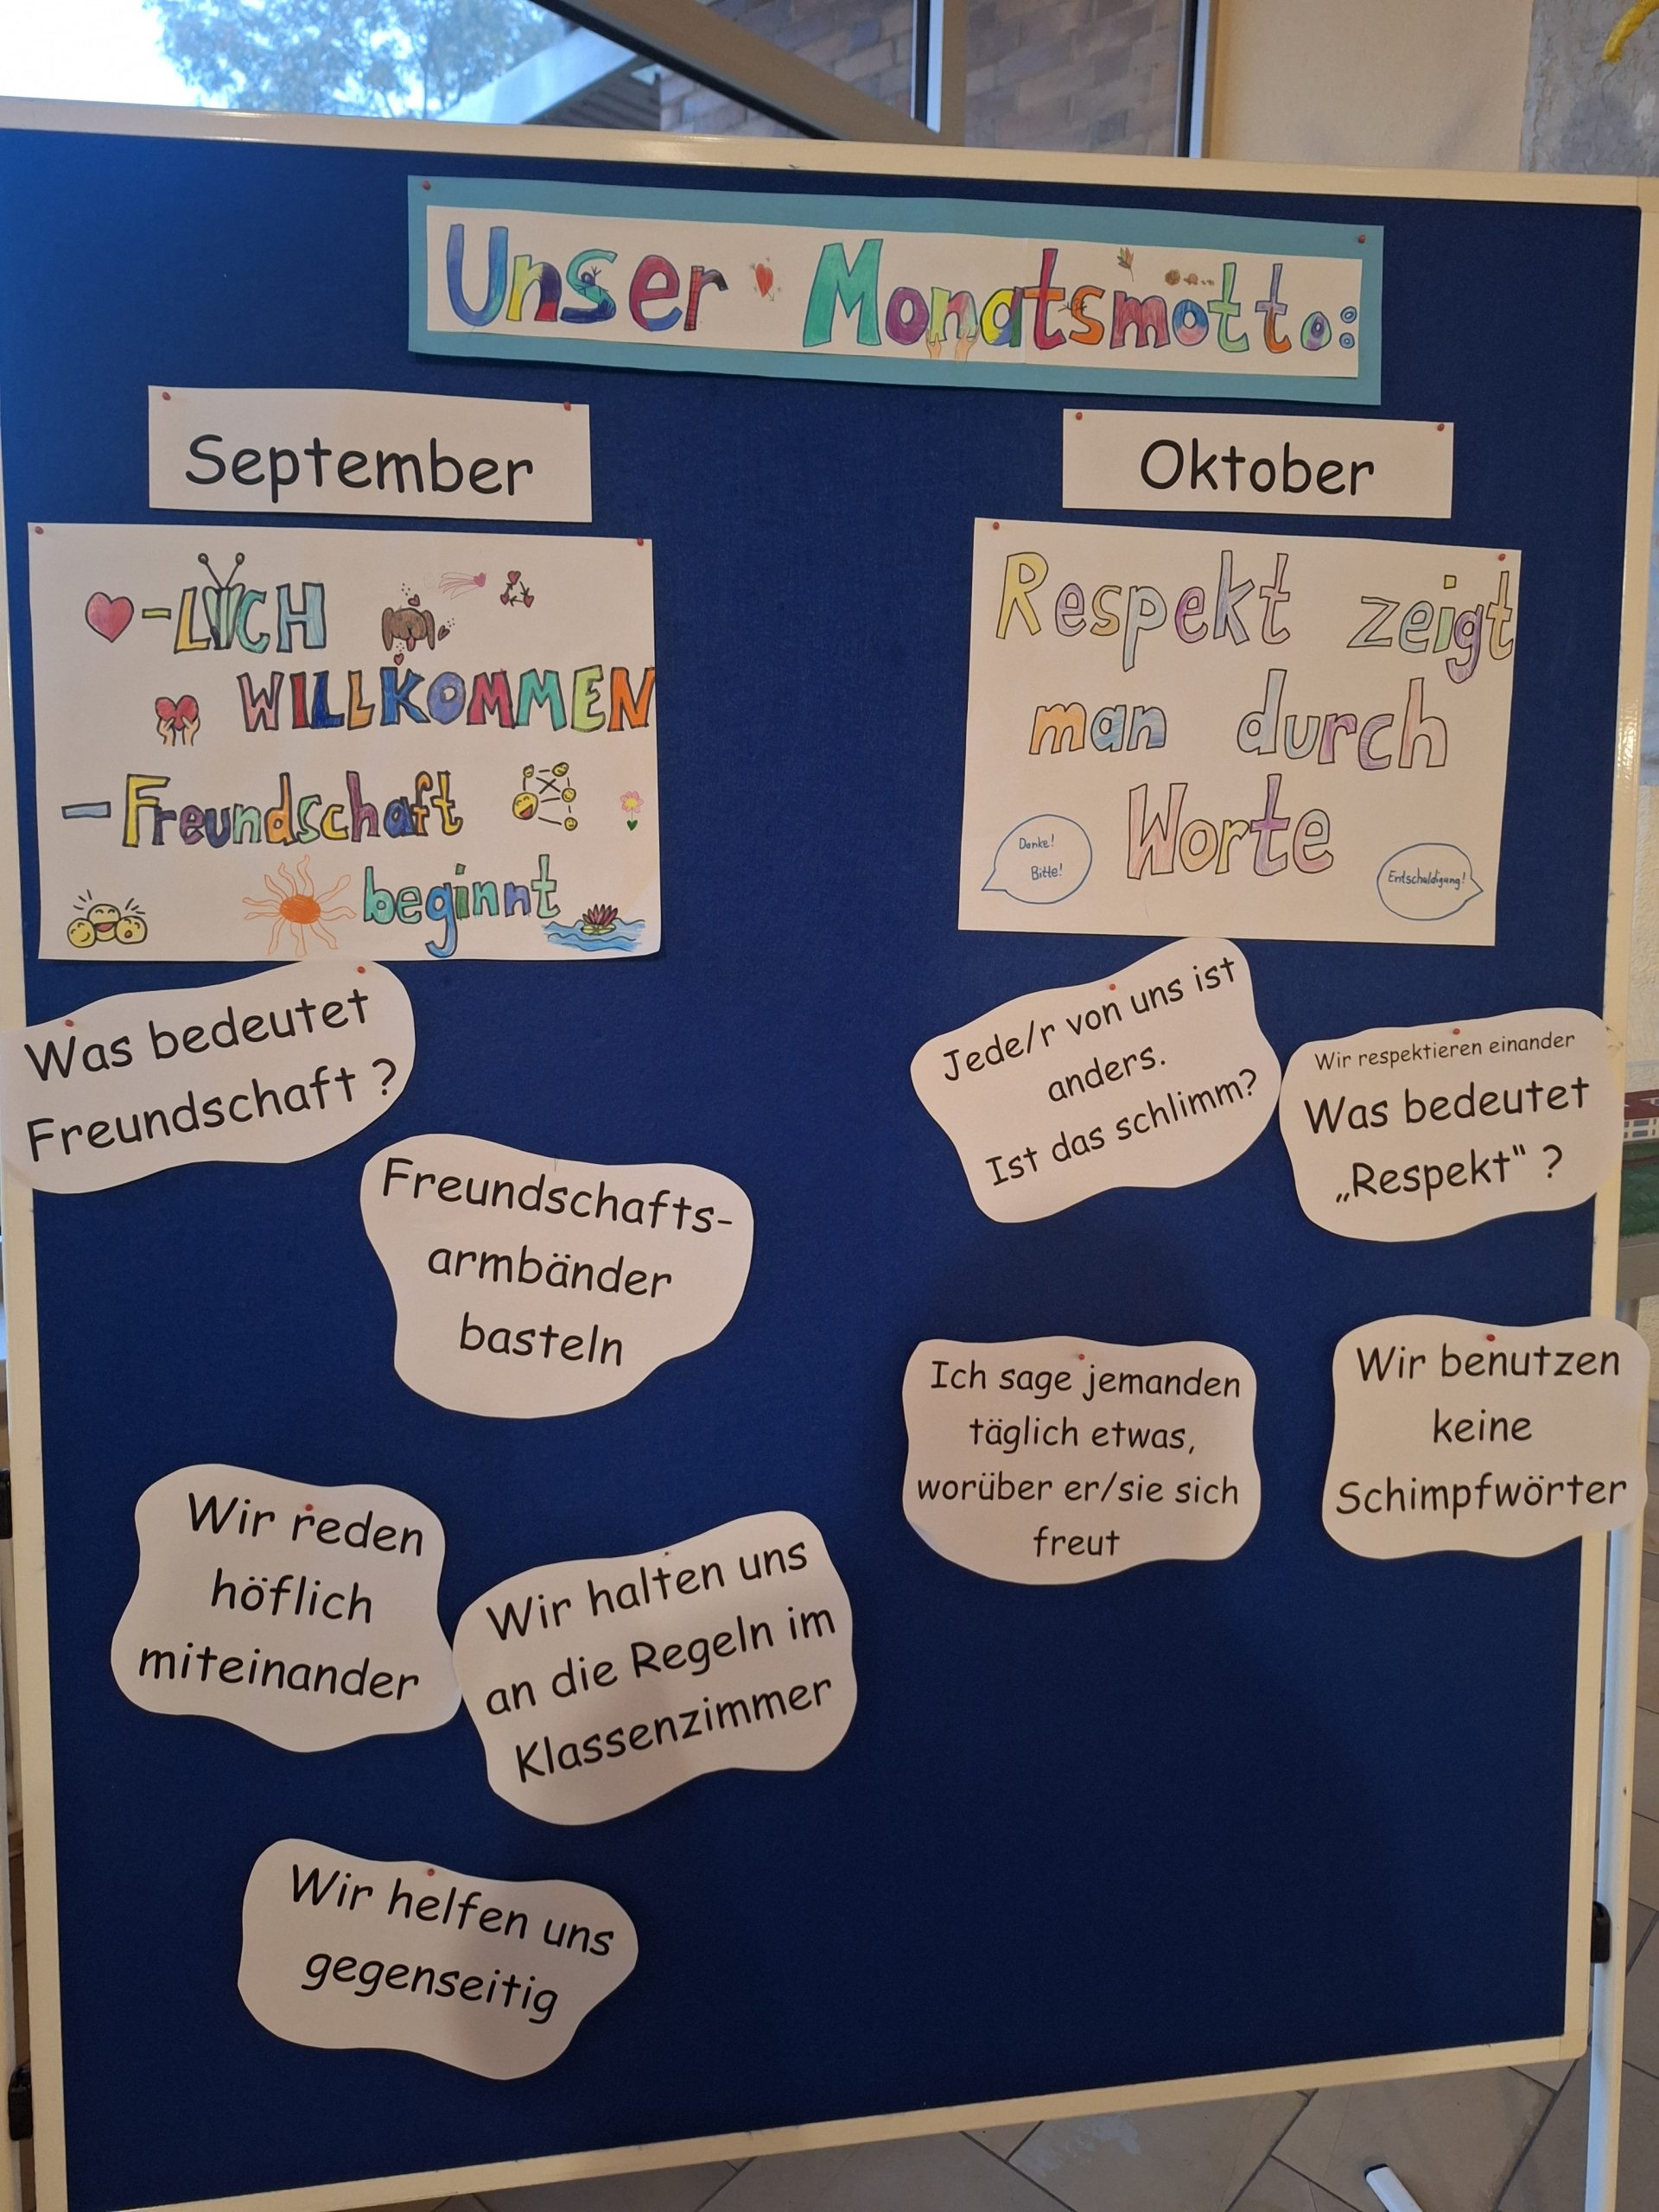 Unser Monatsmotto:
September
-LICH
WILLKOMMEN
-Freundschaft
beginnt
Was bedeutet
Freundschaft ?
Freundschafts-
armbänder
basteln
Wir reden
höflich
miteinander
Wir halten uns
an die Regeln im
Klassenzimmer
Wir helfen uns
gegenseitig
Oktober
Respekt zeigt
man durch
Worte
Danke!
Bitte!
Entschuldigung!
Jede/r von uns ist
anders.
Ist das schlimm?
Wir respektieren einander
Was bedeutet
„Respekt“ ?
Ich sage jemanden
täglich etwas,
worüber er/sie sich
freut
Wir benutzen
keine
Schimpfwörter